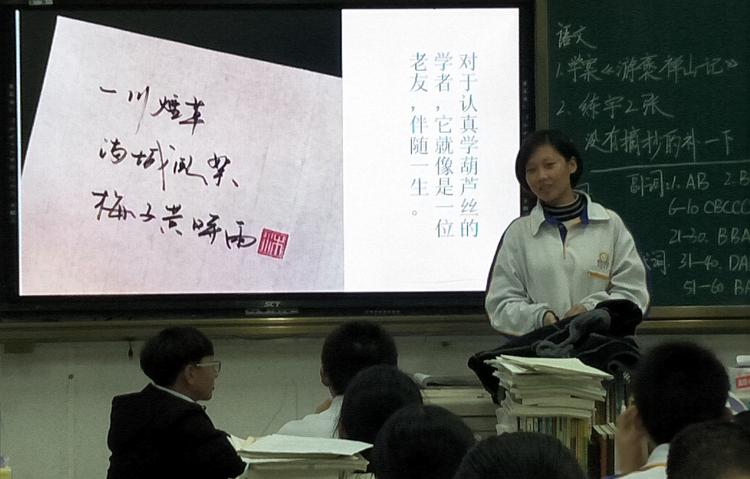 一川煙草
满城风絮
梅子黄时雨
对于认真学葫芦丝的
学者，它就像是一位
老友，伴随一生。
语文
1.学案《游褒禅山记》
2.练字2张
没有摘抄的补一下
副词:1.AB 2.B
6-10 CBCCC
21-30. BBA
词:31-40. DA
51-60 BA
SCT